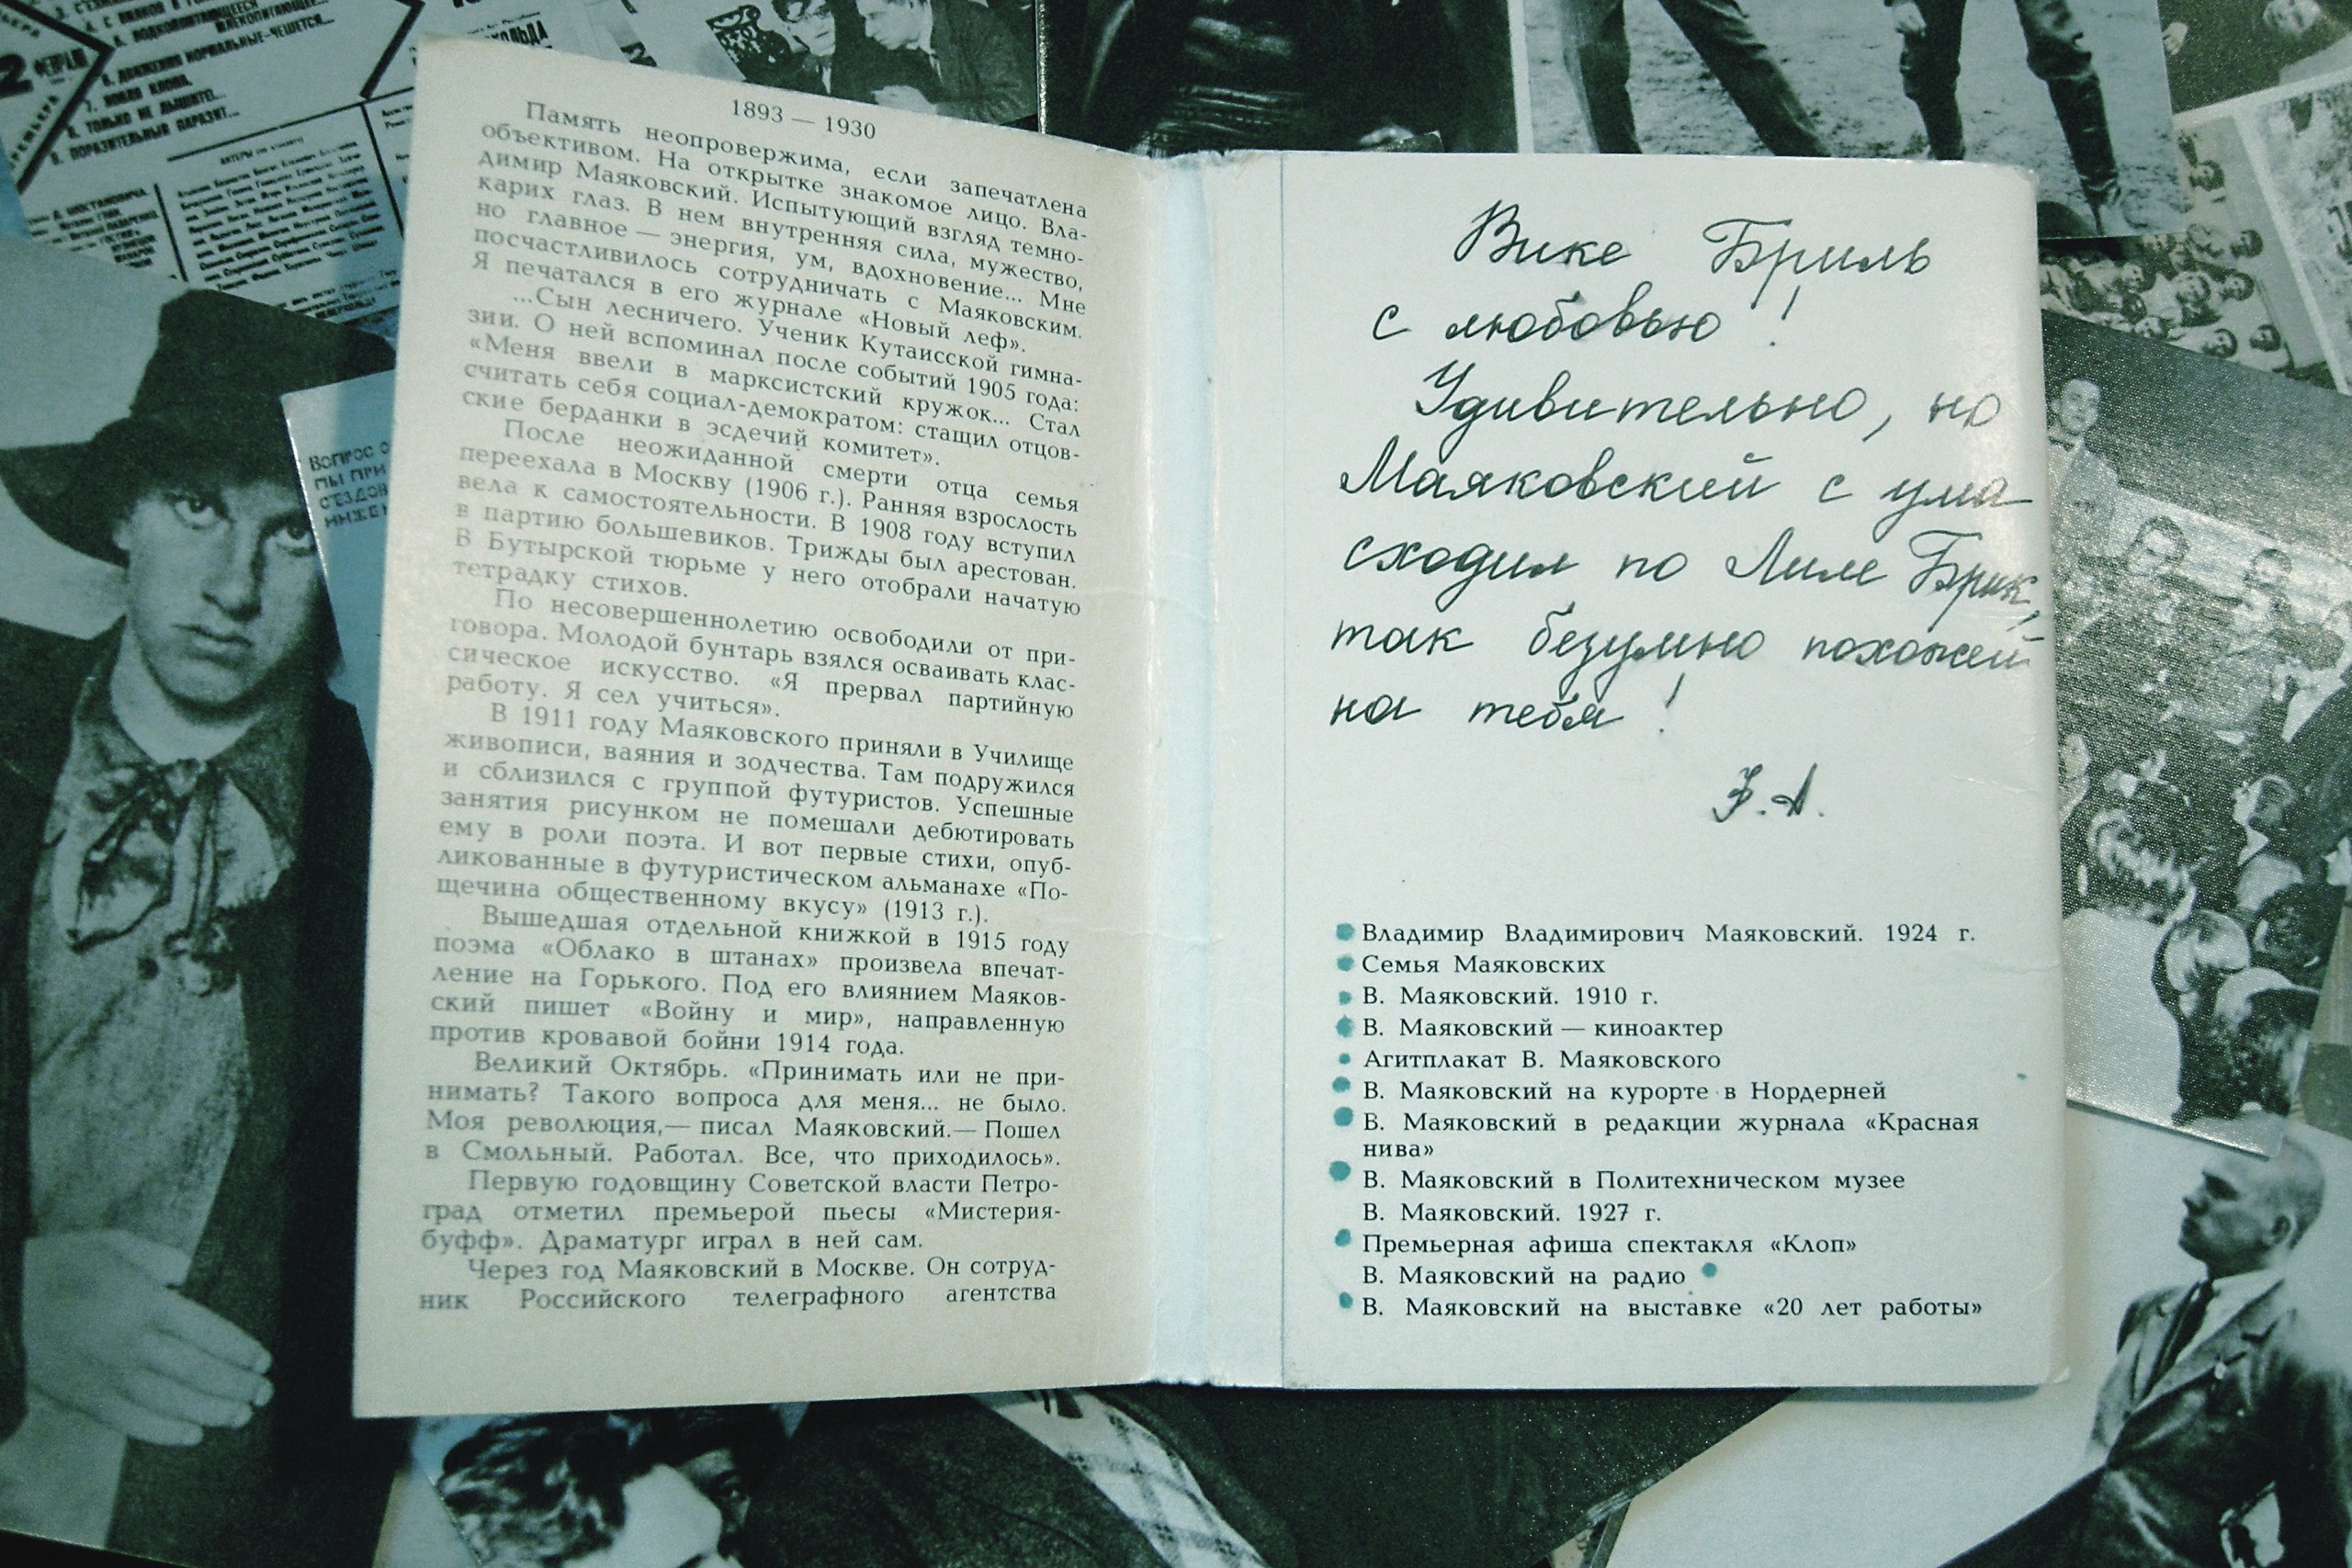 2 ФЕВРАЛЯ
ПРЕМЬЕРА
6. ДВИЖЕНИЯ НОРМАЛЬНЫЕ-ЧЕШЕТСЯ...
7. ВОПЛИ КЛОПА.
8. ТОЛЬКО НЕ ДЫШИТЕ!...
9. ПОРАЗИТЕЛЬНЫЙ ПАРАЗИТ...
ВОПРОС О
ПЫ ПРИ
СЪЕЗДОВ
ИНЖЕН
1893 — 1930
Память неопровержима, если запечатлена
объективом. На открытке знакомое лицо. Вла-
димир Маяковский. Испытующий взгляд темно-
карих глаз. В нем внутренняя сила, мужество,
но главное — энергия, ум, вдохновение... Мне
посчастливилось сотрудничать с Маяковским.
Я печатался в его журнале «Новый леф».
...Сын лесничего. Ученик Кутаисской гимна-
зии. О ней вспоминал после событий 1905 года:
«Меня ввели в марксистский кружок... Стал
считать себя социал-демократом: стащил отцов-
ские берданки в эсдечий комитет».
После неожиданной смерти отца семья
переехала в Москву (1906 г.). Ранняя взрослость
вела к самостоятельности. В 1908 году вступил
в партию большевиков. Трижды был арестован.
В Бутырской тюрьме у него отобрали начатую
тетрадку стихов.
По несовершеннолетию освободили от при-
говора. Молодой бунтарь взялся осваивать клас-
сическое искусство. «Я прервал партийную
работу. Я сел учиться».
В 1911 году Маяковского приняли в Училище
живописи, ваяния и зодчества. Там подружился
и сблизился с группой футуристов. Успешные
занятия рисунком не помешали дебютировать
ему в роли поэта. И вот первые стихи, опуб-
ликованные в футуристическом альманахе «По-
щечина общественному вкусу» (1913 г.).
Вышедшая отдельной книжкой в 1915 году
поэма «Облако в штанах» произвела впечат-
ление на Горького. Под его влиянием Маяков-
ский пишет «Войну и мир», направленную
против кровавой бойни 1914 года.
Великий Октябрь. «Принимать или не при-
нимать? Такого вопроса для меня... не было.
Моя революция,— писал Маяковский.— Пошел
в Смольный. Работал. Все, что приходилось».
Первую годовщину Советской власти Петро-
град отметил премьерой пьесы «Мистерия-
буфф». Драматург играл в ней сам.
Через год Маяковский в Москве. Он сотруд-
ник Российского телеграфного агентства
Вике Бриль
с любовью!
Удивительно, но
Маяковский с ума
сходил по Лиле Брик,
так безумно похожей
на тебя!
Владимир Владимирович Маяковский. 1924 г.
Семья Маяковских
В. Маяковский. 1910 г.
В. Маяковский — киноактер
Агитплакат В. Маяковского
В. Маяковский на курорте в Нордерней
В. Маяковский в редакции журнала «Красная
нива»
В. Маяковский в Политехническом музее
В. Маяковский. 1927 г.
Премьерная афиша спектакля «Клоп»
В. Маяковский на радио
В. Маяковский на выставке «20 лет работы»